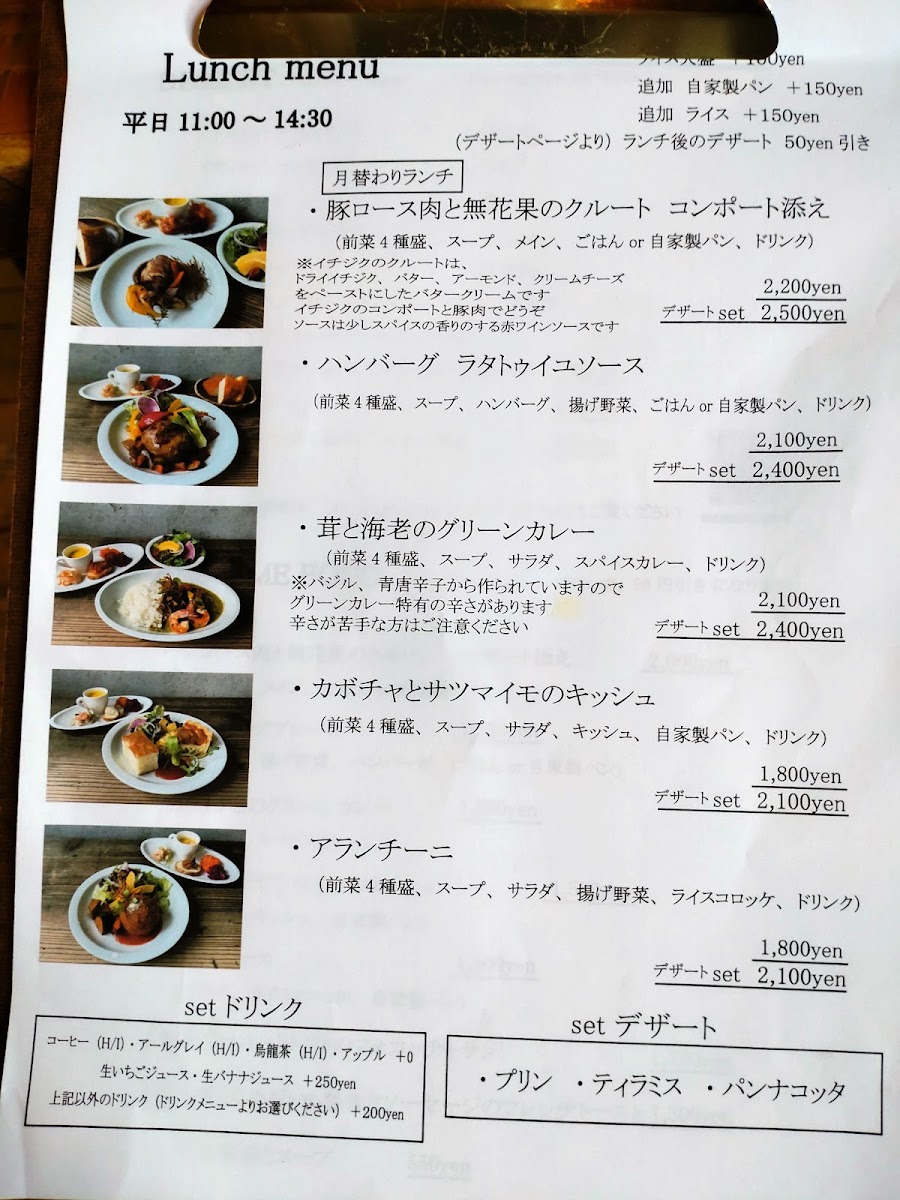 Lunch menu
平日 11:00 ～ 14:30
追加 自家製パン ＋150yen
追加 ライス ＋150yen
(デザートページより) ランチ後のデザート 50yen 引き
月替わりランチ
・豚ロース肉と無花果のクルート コンポート添え
(前菜４種盛、スープ、メイン、ごはん or 自家製パン、ドリンク)
※イチジクのクルートは、
ドライイチジク、バター、アーモンド、クリームチーズ
をペーストにしたバタークリームです
イチジクのコンポートと豚肉でどうぞ
ソースは少しスパイスの香りのする赤ワインソースです
2,200yen
デザート set 2,500yen
・ハンバーグ ラタトゥイユソース
(前菜４種盛、スープ、ハンバーグ、揚げ野菜、ごはん or 自家製パン、ドリンク)
2,100yen
デザート set 2,400yen
・茸と海老のグリーンカレー
(前菜４種盛、スープ、サラダ、スパイスカレー、ドリンク)
※バジル、青唐辛子から作られていますので
グリーンカレー特有の辛さがあります
辛さが苦手な方はご注意ください
2,100yen
デザート set 2,400yen
・カボチャとサツマイモのキッシュ
(前菜４種盛、スープ、サラダ、キッシュ、自家製パン、ドリンク)
1,800yen
デザート set 2,100yen
・アランチーニ
(前菜４種盛、スープ、サラダ、揚げ野菜、ライスコロッケ、ドリンク)
1,800yen
デザート set 2,100yen
set ドリンク
コーヒー (H/I)・アールグレイ (H/I)・烏龍茶 (H/I)・アップル ＋0
生いちごジュース・生バナナジュース ＋250yen
上記以外のドリンク (ドリンクメニューよりお選びください) ＋200yen
set デザート
・プリン ・ティラミス ・パンナコッタ